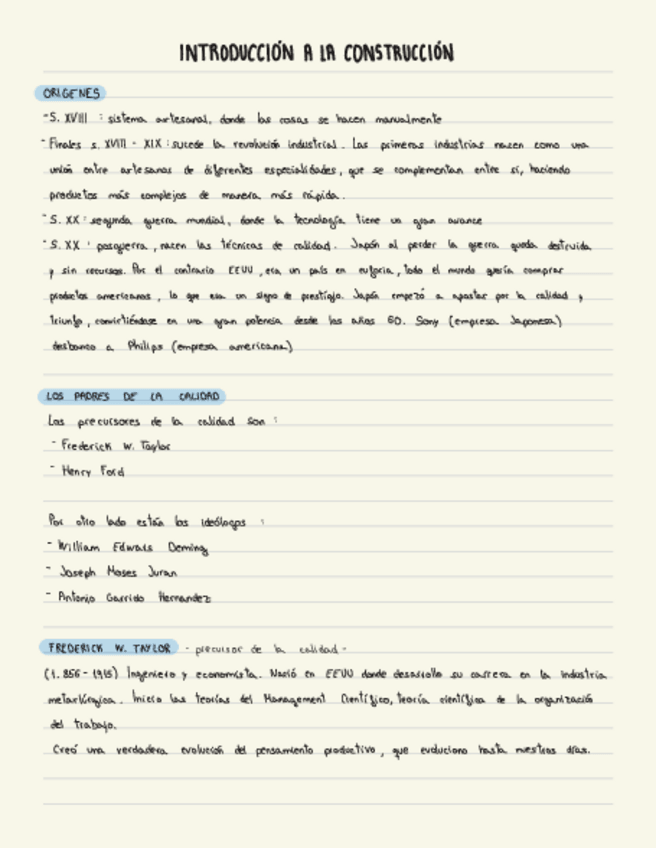 INTRODUCCIÓN A LA CONSTRUCCIÓN
ORIGENES
- S. XVIII : sistema artesanal, donde las cosas se hacen manualmente
- Finales s. XVIII - XIX : sucede la revolución industrial. Las primeras industrias nacen como una
unión entre artesanos de diferentes especialidades, que se complementan entre sí, haciendo
productos más complejos de manera más rápida.
- S. XX : segunda guerra mundial, donde la tecnología tiene un gran avance
- S. XX : posguerra, nacen las técnicas de calidad. Japón al perder la guerra queda destruida
y sin recursos. Por el contrario EEUU, era un país en euforia, todo el mundo quería comprar
productos americanos, lo que era un signo de prestigio. Japón empezó a apostar por la calidad y
triunfo, convirtiéndose en una gran potencia desde los años 60. Sony (empresa Japonesa)
desbanco a Philips (empresa americana)
LOS PADRES DE LA CALIDAD
Los precursores de la calidad son :
- Frederick W. Taylor
- Henry Ford
Por otro lado están los ideólogos :
- William Edwars Deming
- Joseph Moses Juran
- Antonio Garrido Hernandez
FREDERICK W. TAYLOR - precursor de la calidad -
(1.856 - 1915) Ingeniero y economista. Nació en EEUU donde desarrollo su carrera en la industria
metalúrgica. Inicio las teorías del Management Científico, teoría científica de la organización
del trabajo.
Creó una verdadera evolución del pensamiento productivo, que evoluciono hasta nuestros días.